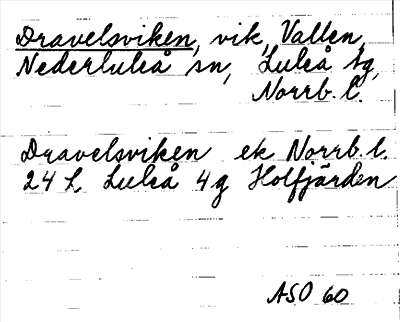 Dravelsviken, vik, Vallen,
Nederluleå sn, Luleå tg,
Norrb. l.
Dravelsviken ek Norrb. l.
24 L, Luleå 4g Holfjärden
ASO 60